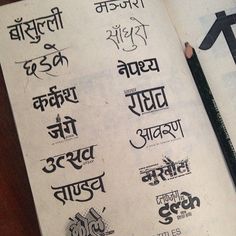 बाँसुल्ली
मञ्जरी
छड्के
साँघुरो
नेपथ्य
कर्कश
राघव
जंगे
आवरण
उत्सव
मुखौटा
ताण्डव
टुल्के
झोले